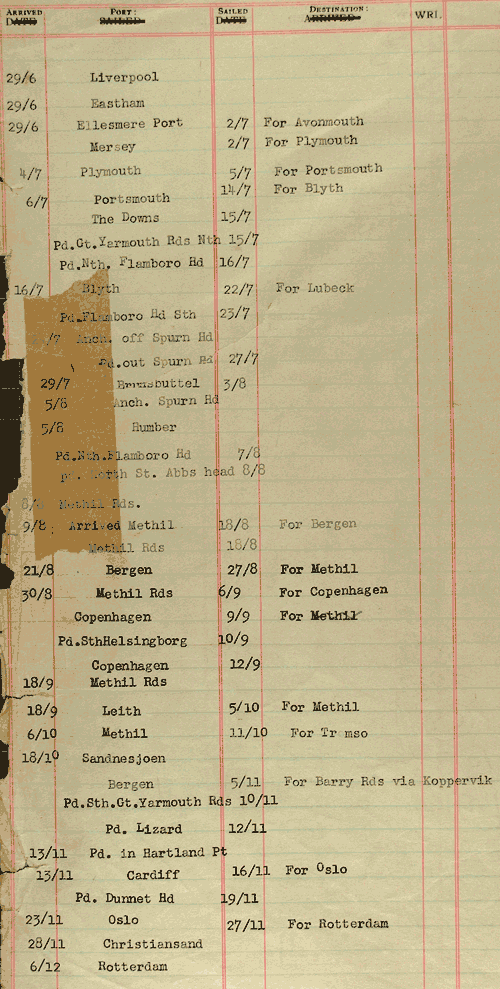 ARRIVED PORT: SAILED DESTINATION: WRI.
DATE SAILED DATE ARRIVED
29/6 Liverpool
29/6 Eastham
29/6 Ellesmere Port 2/7 For Avonmouth
Mersey 2/7 For Plymouth
4/7 Plymouth 5/7 For Portsmouth
14/7 For Blyth
6/7 Portsmouth
The Downs 15/7
Pd.Gt.Yarmouth Rds Nth 15/7
Pd.Nth. Flamboro Hd 16/7
16/7 Blyth 22/7 For Lubeck
Pd.Flamboro Hd Sth 23/7
/7 Anch. off Spurn Hd
Pd.out Spurn Hd 27/7
29/7 Brunsbuttel 3/8
5/8 Anch. Spurn Hd
5/8 Humber
Pd.Nth.Flamboro Hd 7/8
St. Abbs head 8/8
Methil Rds.
9/8 Arrived Methil 18/8 For Bergen
Methil Rds 18/8
21/8 Bergen 27/8 For Methil
30/8 Methil Rds 6/9 For Copenhagen
Copenhagen 9/9 For Methil
Pd.SthHelsingborg 10/9
Copenhagen 12/9
18/9 Methil Rds
18/9 Leith 5/10 For Methil
6/10 Methil 11/10 For Tr mso
18/10 Sandnesjoen
Bergen 5/11 For Barry Rds via Koppervik
Pd.Sth.Gt.Yarmouth Rds 10/11
Pd. Lizard 12/11
13/11 Pd. in Hartland Pt
13/11 Cardiff 16/11 For Oslo
Pd. Dunnet Hd 19/11
23/11 Oslo 27/11 For Rotterdam
28/11 Christiansand
6/12 Rotterdam